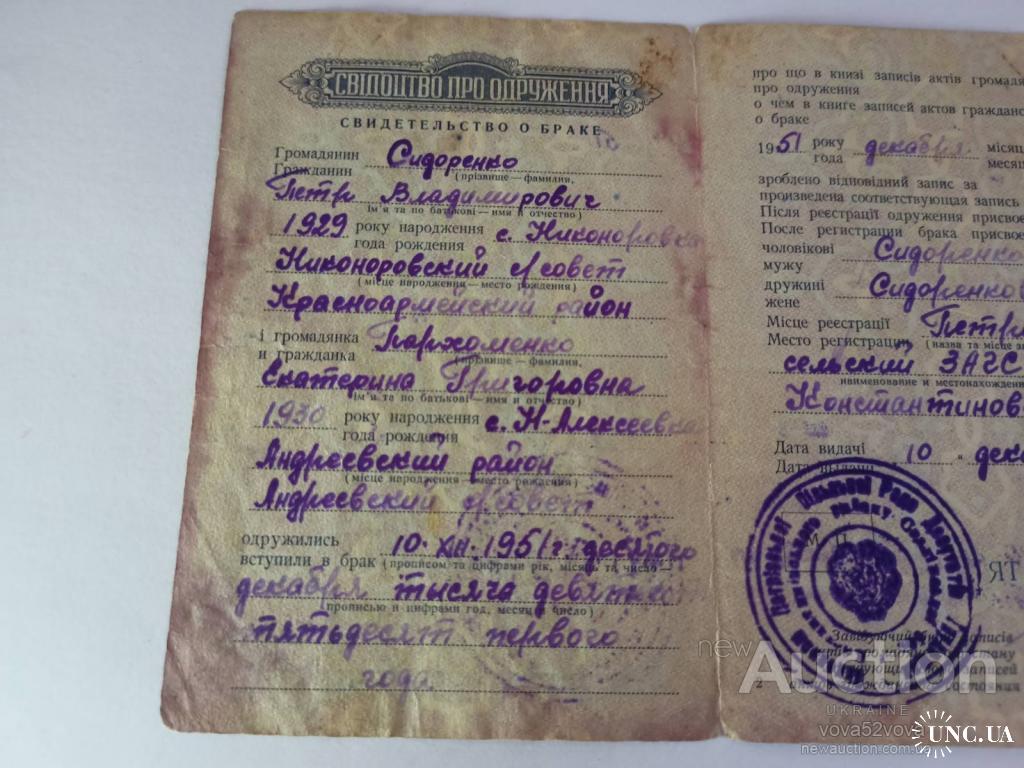 СВІДОЦТВО ПРО ОДРУЖЕННЯ
СВИДЕТЕЛЬСТВО О БРАКЕ
Громадянин Сидоренко
Гражданин (прізвище — фамилия,
Петр Владимирович
ім'я та по батькові — имя и отчество)
1929 року народження с. Никоноровка
года рождения
Никоноровский с/совет
(місце народження — место рождения)
Красноармейский район
і громадянка Пархоменко
и гражданка прізвище — фамилия,
Екатерина Григоровна
ім'я та по батькові — имя и отчество)
1930 року народження с. Н-Алексеевка
года рождения
Андреевский район
(місце народження — место рождения)
Андреевский с/совет
одружились 10. XII. 1951 г. десятого
вступили в брак (прописом та цифрами рік, місяць та число —
декабря тысяча девятьсот
(прописью и цифрами год, месяц и число)
пятьдесят первого
года
про що в книзі записів актів громадя
про одруження
о чем в книге записей актов гражданс
о браке
1951 року декабря місяц
года месяц
зроблено відповідний запис за
произведена соответствующая запись
Після реєстрації одруження присвоє
После регистрации брака присвое
чоловікові Сидоренко
мужу
дружині Сидоренко
жене
Місце реєстрації Петр
Место регистрации (назва та місце з
сельский ЗАГС
наименование и местонахожден
Константинов
Дата видачі 10 " дека
Дата выдачи
М. П.
ЯТ
Завідуючий бюро записів
записей
2
newAuction
UKRAINE
vova52vova
newauction.com.ua
UNC.UA